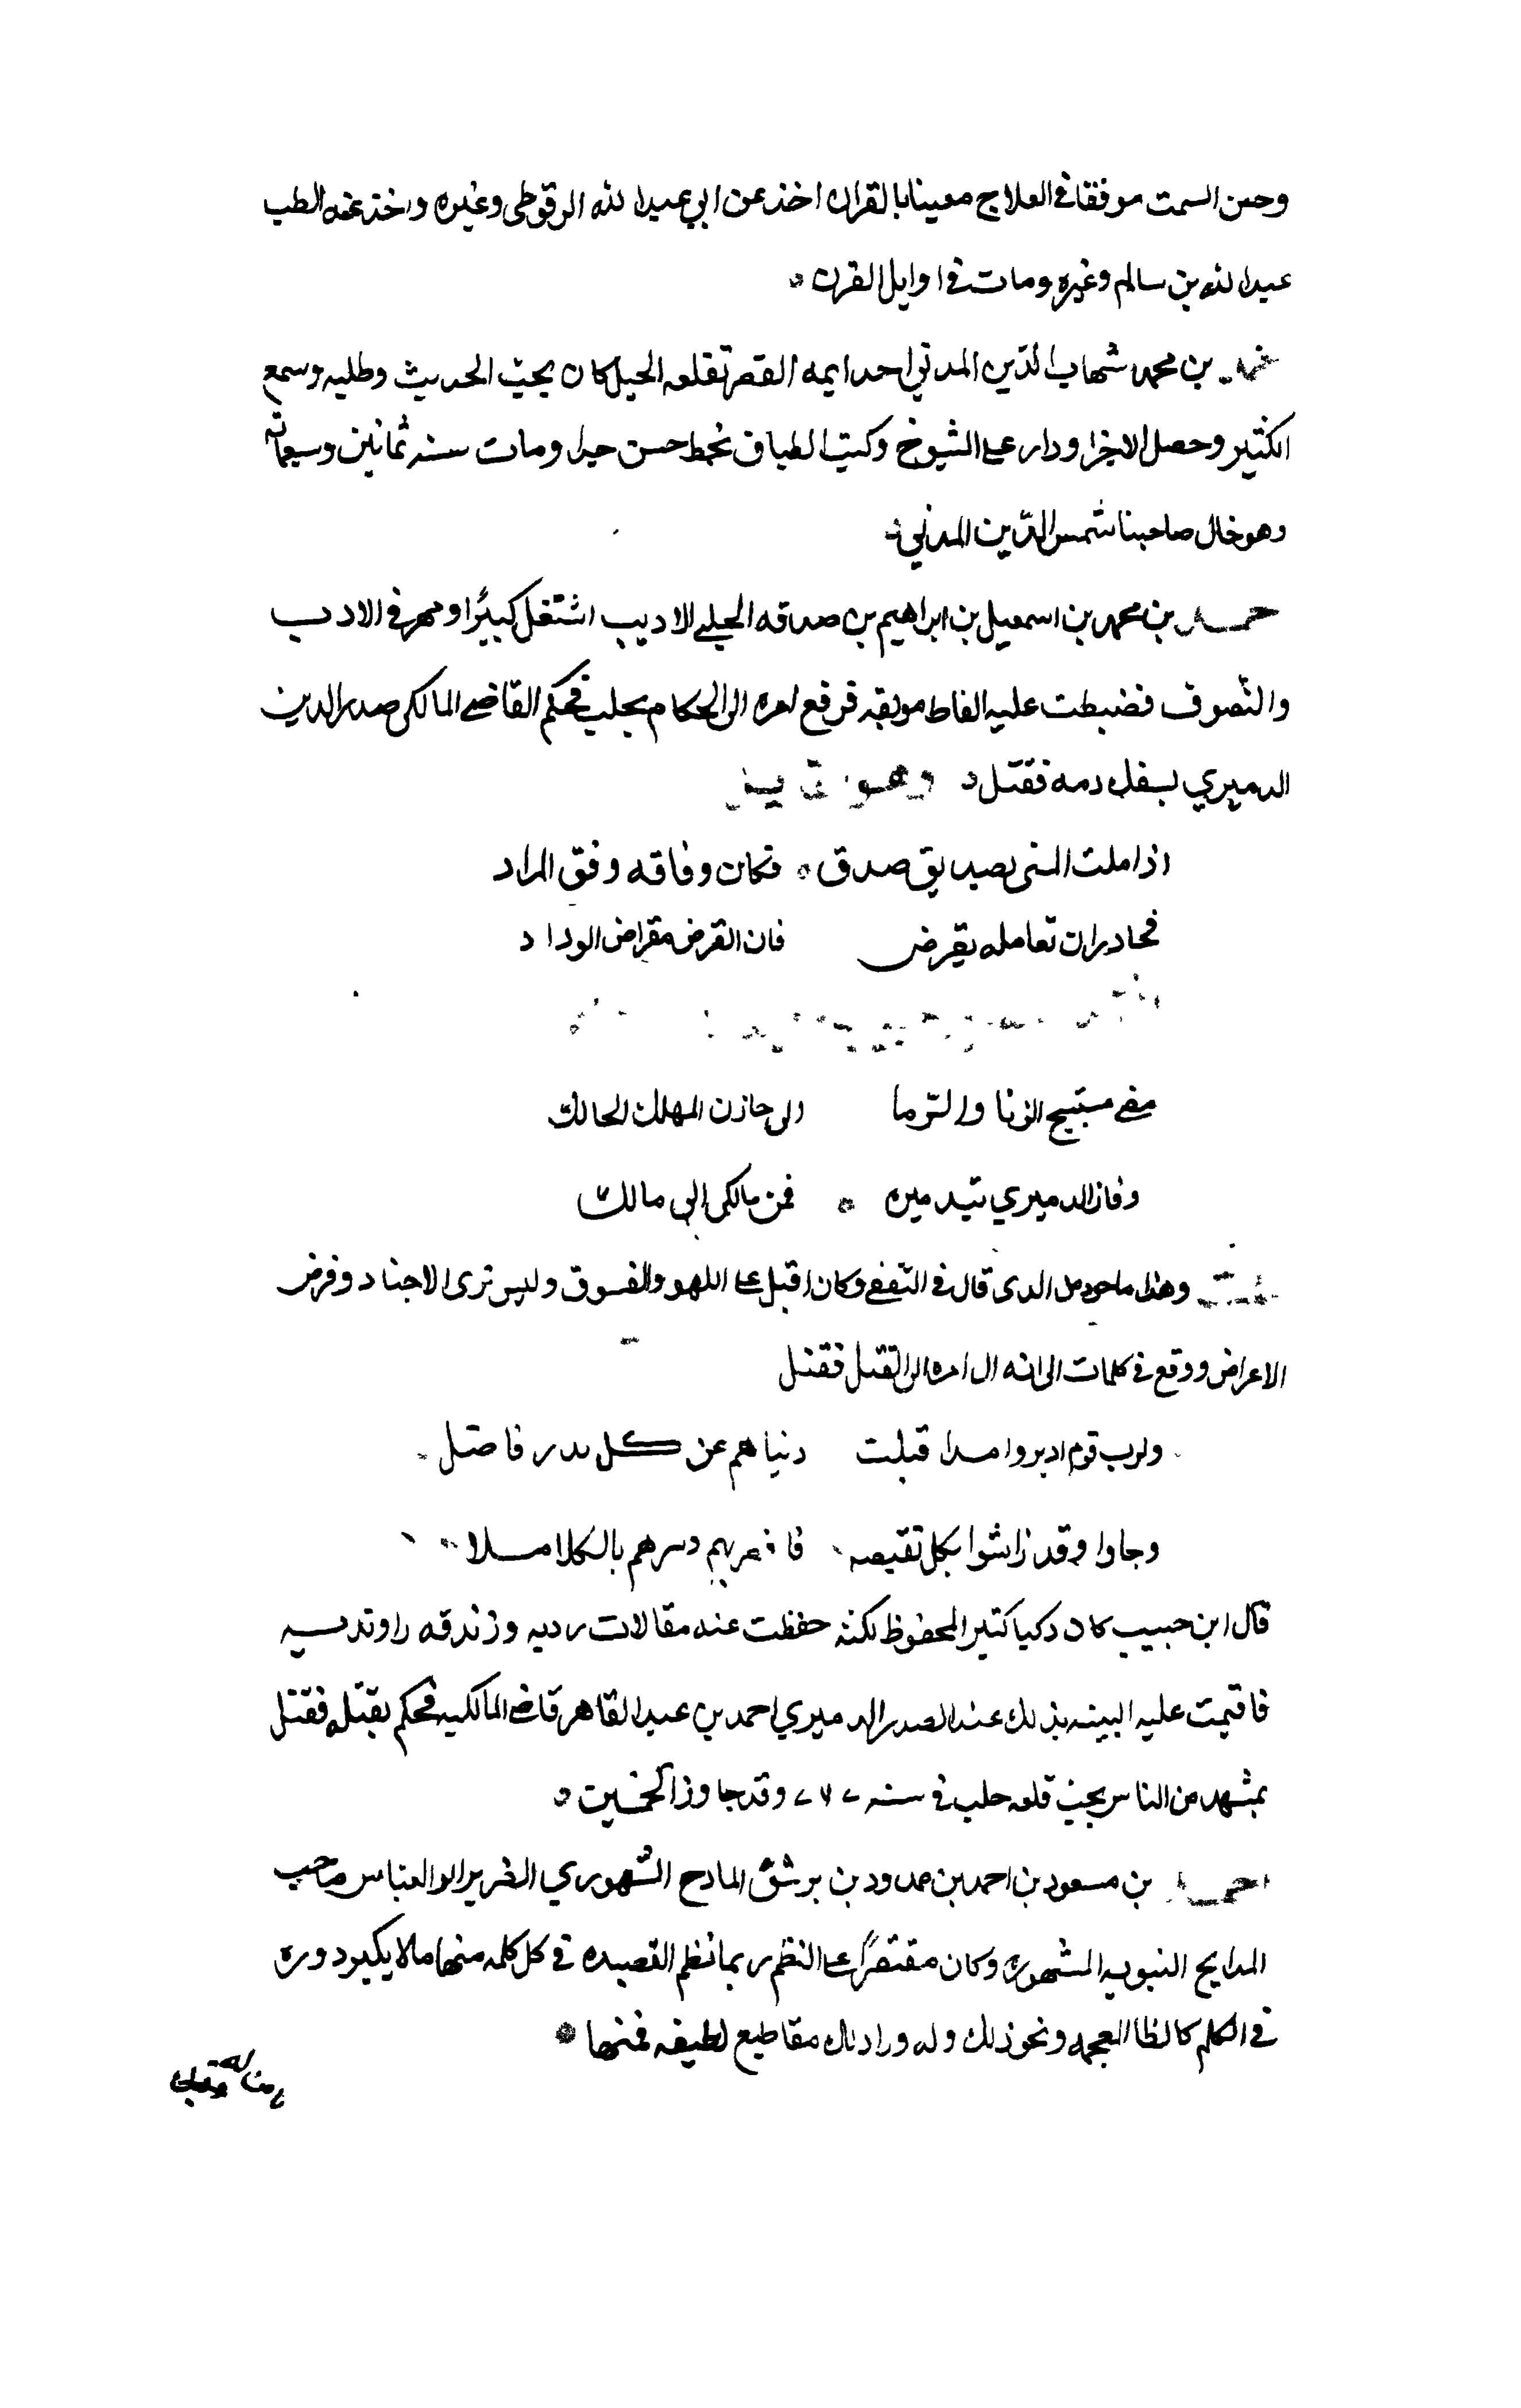 وحسن السمت موفقا في العلاج معينا بالقران اخذ عن ابي عبد الله الرقوطي وغيره واخذ عنه الطب
عبد الله بن سالم وغيره ومات في اوايل القرن
بن محمد شهاب الدين المدني احد ايمه القصر بقلعه الجبل كان يحب الحديث وطلبه وسمع
الكثير وحصل الاجزا ودار على الشيوخ وكتب الطباق بخط حسن جدا ومات سنه ثمانين وسبعمائه
وهو خال صاحبنا شمس الدين المدني
احمد بن محمد بن اسمعيل بن ابراهيم بن صدقه الحلبي الاديب اشتغل كثيرا ومهر في الادب
والتصوف فضبطت عليه الفاظ موبقه فرفع امره الى الحكام بحلب فحكم القاضي المالكي صدر الدين
الدميري بسفك دمه فقتل
اذا ملت المنى بصديق صدق فكان وفاقه وفق المراد
فحادر ان تعامله بقرض فان القرض مقراض الوداد
مضى مستبيح الزنا والرما الى خازن المهلك الحالك
وفاز الدميري بتدميره فمن مالكي الى مالك
وهذا ماخوذ من الدى قال في وكان اقبل على اللهو والفسوق ولبس زي الاجناد وفرض
الاعراض ووقع في كلمات الى انه ال امره الى القتل فقتل
ولرب قوم ادبروا مذ اقبلت دنياهم عن كل بدر فاضل
وجاوا وقد راشوا بكل نقيصه
قال ابن حبيب كان ذكيا كثير المحفوظ لكنه حفظت عنه مقالات رديه وزندقه راونديه
فاقيمت عليه البينه بذلك عند الصدر الدميري احمد بن عبد القاهر قاضي المالكيه فحكم بقتله فقتل
بمشهد من الناس بحت قلعه حلب في سنه ٧٦٧ وقد جاوز الخمسين
احمد بن مسعود بن احمد بن ممدود بن برشق المادح السنهوري الضرير ابو العباس صاحب
المدايح النبويه المشهوره وكان مقتدرا على النظم ربما نظم القصيده في كل كلمه منها ما لا يكثر دوره
في الكلم كالظا المعجمه ونحو ذلك وله مقاطيع لطيفه فمنها